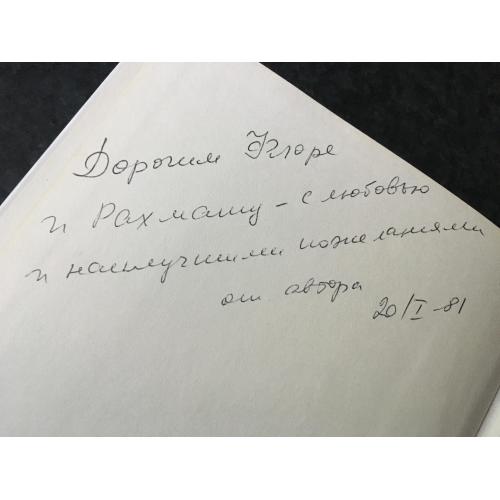 Дорогим Кларе
и Рахмашу – с любовью
и наилучшими пожеланиями
от автора
20/I-81